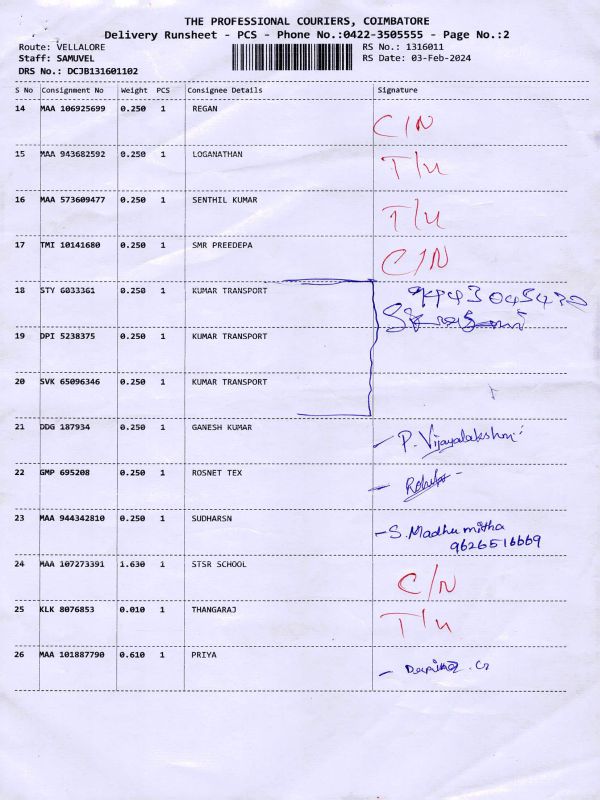 THE PROFESSIONAL COURIERS, COIMBATORE
Delivery Runsheet - PCS - Phone No.:0422-3505555 - Page No.:2
Route: VELLALORE RS No.: 1316011
Staff: SAMUVEL RS Date: 03-Feb-2024
DRS No.: DCJB131601102
S No Consignment No Weight PCS Consignee Details Signature
14 MAA 106925699 0.250 1 REGAN C/N
15 MAA 943682592 0.250 1 LOGANATHAN T/u
16 MAA 573609477 0.250 1 SENTHIL KUMAR T/u
17 TMI 10141680 0.250 1 SMR PREEDEPA C/N
18 STY G033361 0.250 1 KUMAR TRANSPORT
19 DPI 5238375 0.250 1 KUMAR TRANSPORT
20 SVK 65096346 0.250 1 KUMAR TRANSPORT
21 DDG 187934 0.250 1 GANESH KUMAR - P. Vijayalakshmi
22 GMP 695208 0.250 1 ROSNET TEX
23 MAA 944342810 0.250 1 SUDHARSN - S. Madhu mitha
9626516669
24 MAA 107273391 1.630 1 STSR SCHOOL C/N
25 KLK 8076853 0.010 1 THANGARAJ T/u
26 MAA 101887790 0.610 1 PRIYA